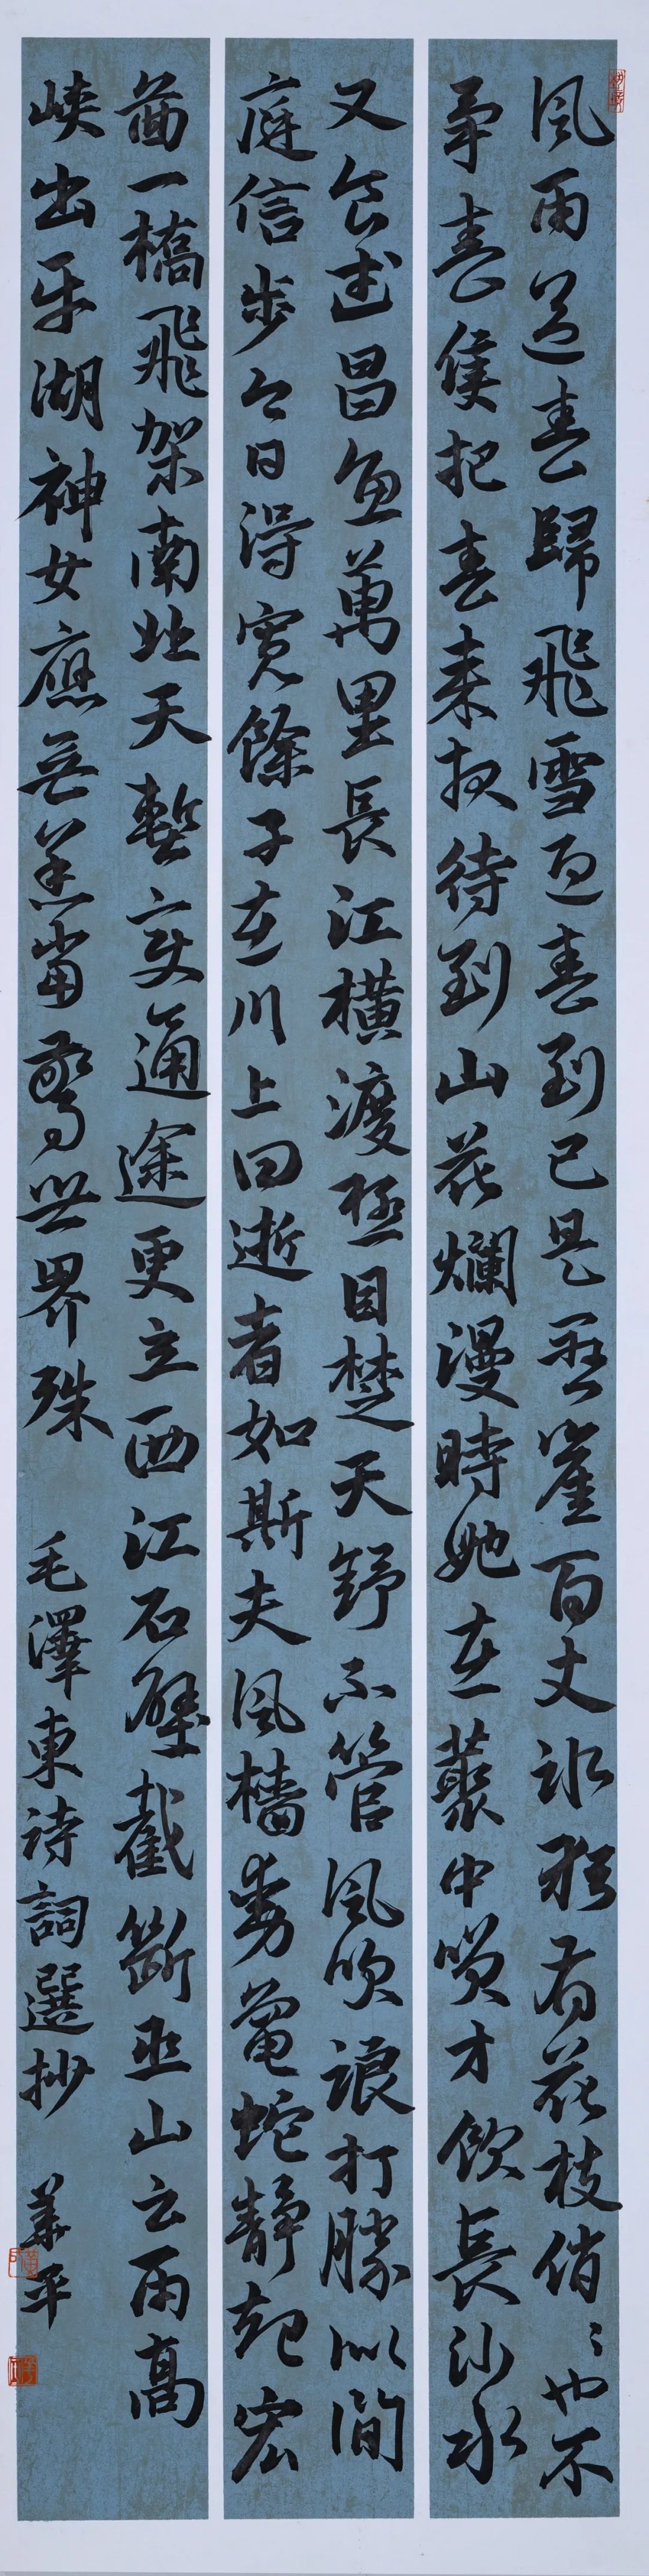 風雨送春歸飛雪迎春到已是懸崖百丈冰猶有花枝俏々也不
爭春隻把春來報待到山花爛漫時她在叢中咲才飲長沙水
又食武昌魚萬里長江橫渡極目楚天舒不管風吹浪打勝似閒
庭信步今日得寬餘子在川上曰逝者如斯夫風檣動龜蛇靜起宏
圖一橋飛架南北天塹變通途更立西江石壁截斷巫山云雨高
峽出平湖神女應無恙當驚世界殊 毛澤東詩詞選抄 華平